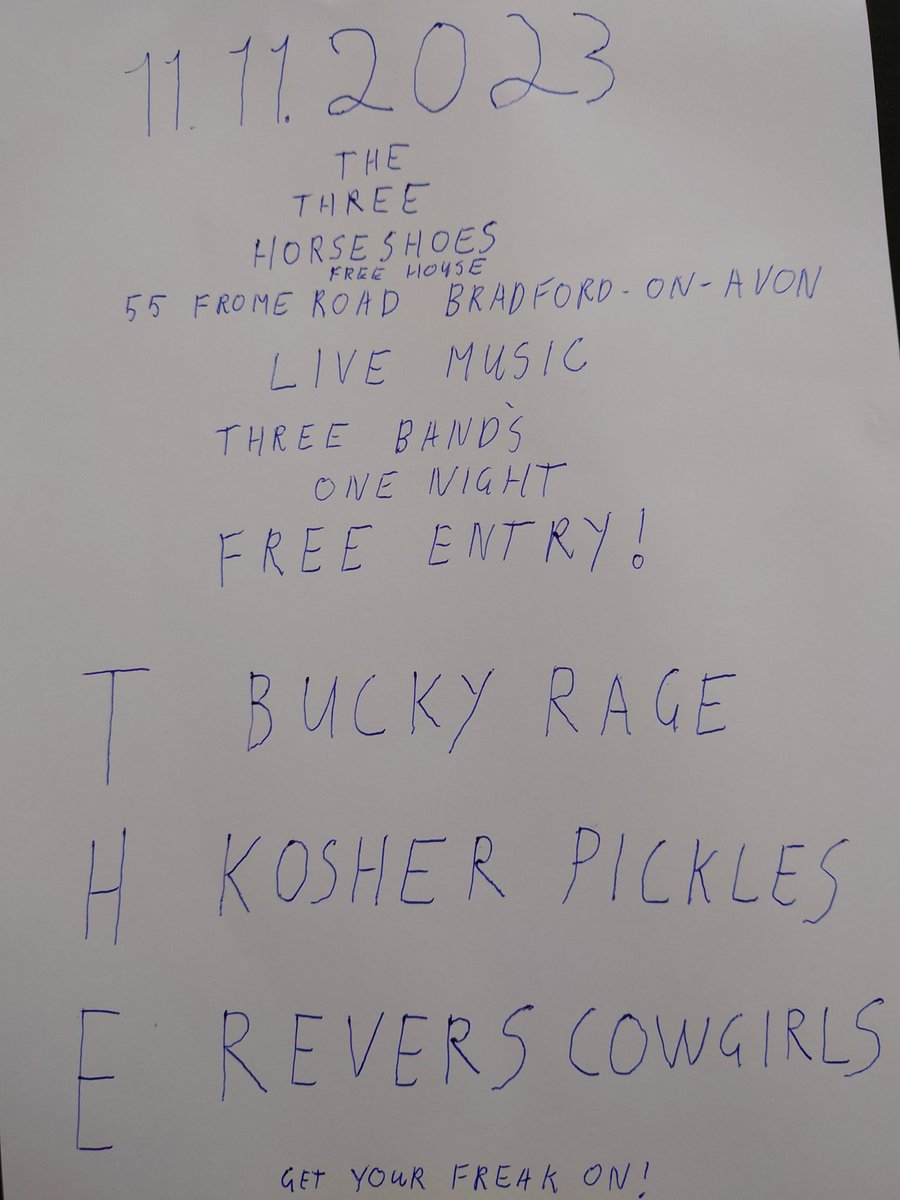 11.11.2023
THE
THREE
HORSESHOES
FREE HOUSE
55 FROME ROAD BRADFORD-ON-AVON
LIVE MUSIC
THREE BAND`S
ONE NIGHT
FREE ENTRY!
T BUCKY RAGE
H KOSHER PICKLES
E REVERS COWGIRLS
GET YOUR FREAK ON!